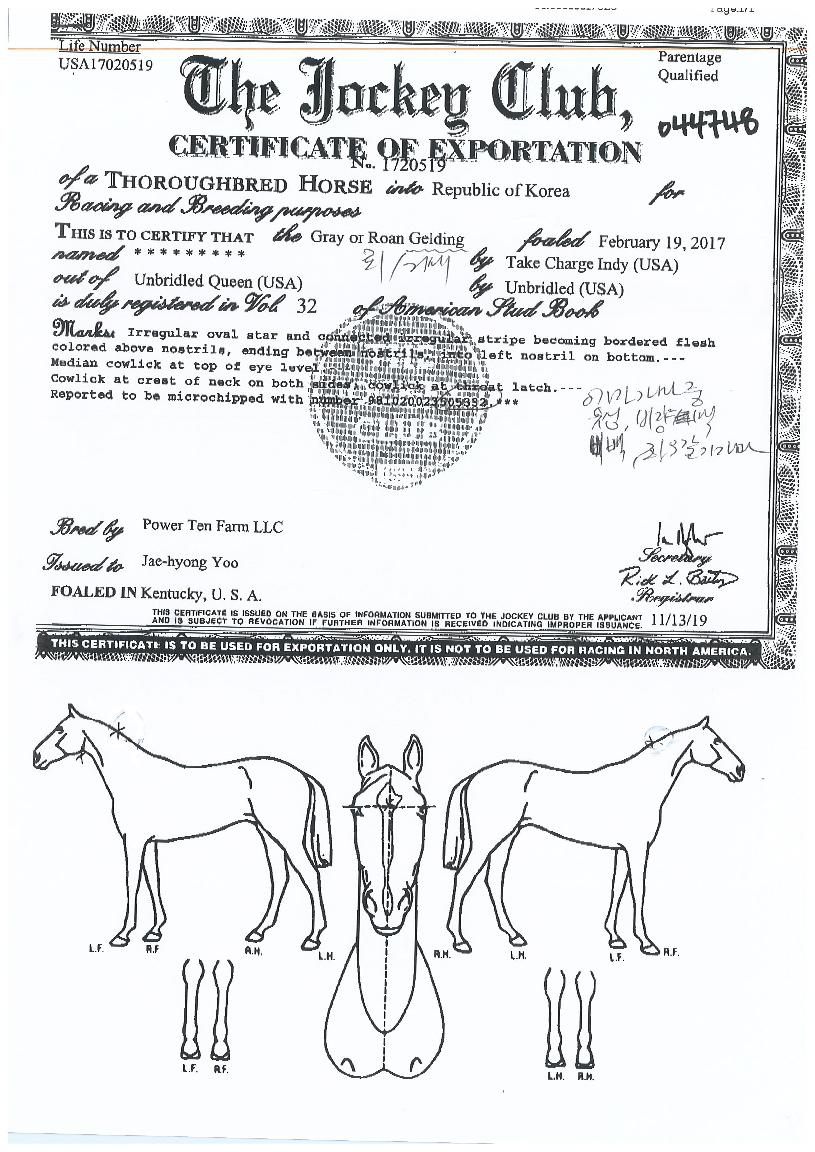 Life Number
USA17020519
Parentage
Qualified
The Jockey Club,
044748
CERTIFICATE OF EXPORTATION
No. 1720519
of a THOROUGHBRED HORSE into Republic of Korea for
Racing and Breeding purposes
THIS IS TO CERTIFY THAT the Gray or Roan Gelding foaled February 19, 2017
named * * * * * * * * * by Take Charge Indy (USA)
out of Unbridled Queen (USA) by Unbridled (USA)
is duly registered in Vol. 32 of American Stud Book
Marks: Irregular oval star and connected irregular stripe becoming bordered flesh
colored above nostrils, ending between nostrils, into left nostril on bottom.---
Median cowlick at top of eye level.
Cowlick at crest of neck on both sides, cowlick at throat latch.---
Reported to be microchipped with number 981020023505392.***
Bred by Power Ten Farm LLC
Issued to Jae-hyong Yoo
FOALED IN Kentucky, U. S. A.
Secretary
Rick L. Bailey
Registrar
THIS CERTIFICATE IS ISSUED ON THE BASIS OF INFORMATION SUBMITTED TO THE JOCKEY CLUB BY THE APPLICANT
AND IS SUBJECT TO REVOCATION IF FURTHER INFORMATION IS RECEIVED INDICATING IMPROPER ISSUANCE. 11/13/19
THIS CERTIFICATE IS TO BE USED FOR EXPORTATION ONLY. IT IS NOT TO BE USED FOR RACING IN NORTH AMERICA.
L.F. R.F R.H. L.H. R.H. L.H. L.F. R.F.
L.F. R.F. L.H. R.H.